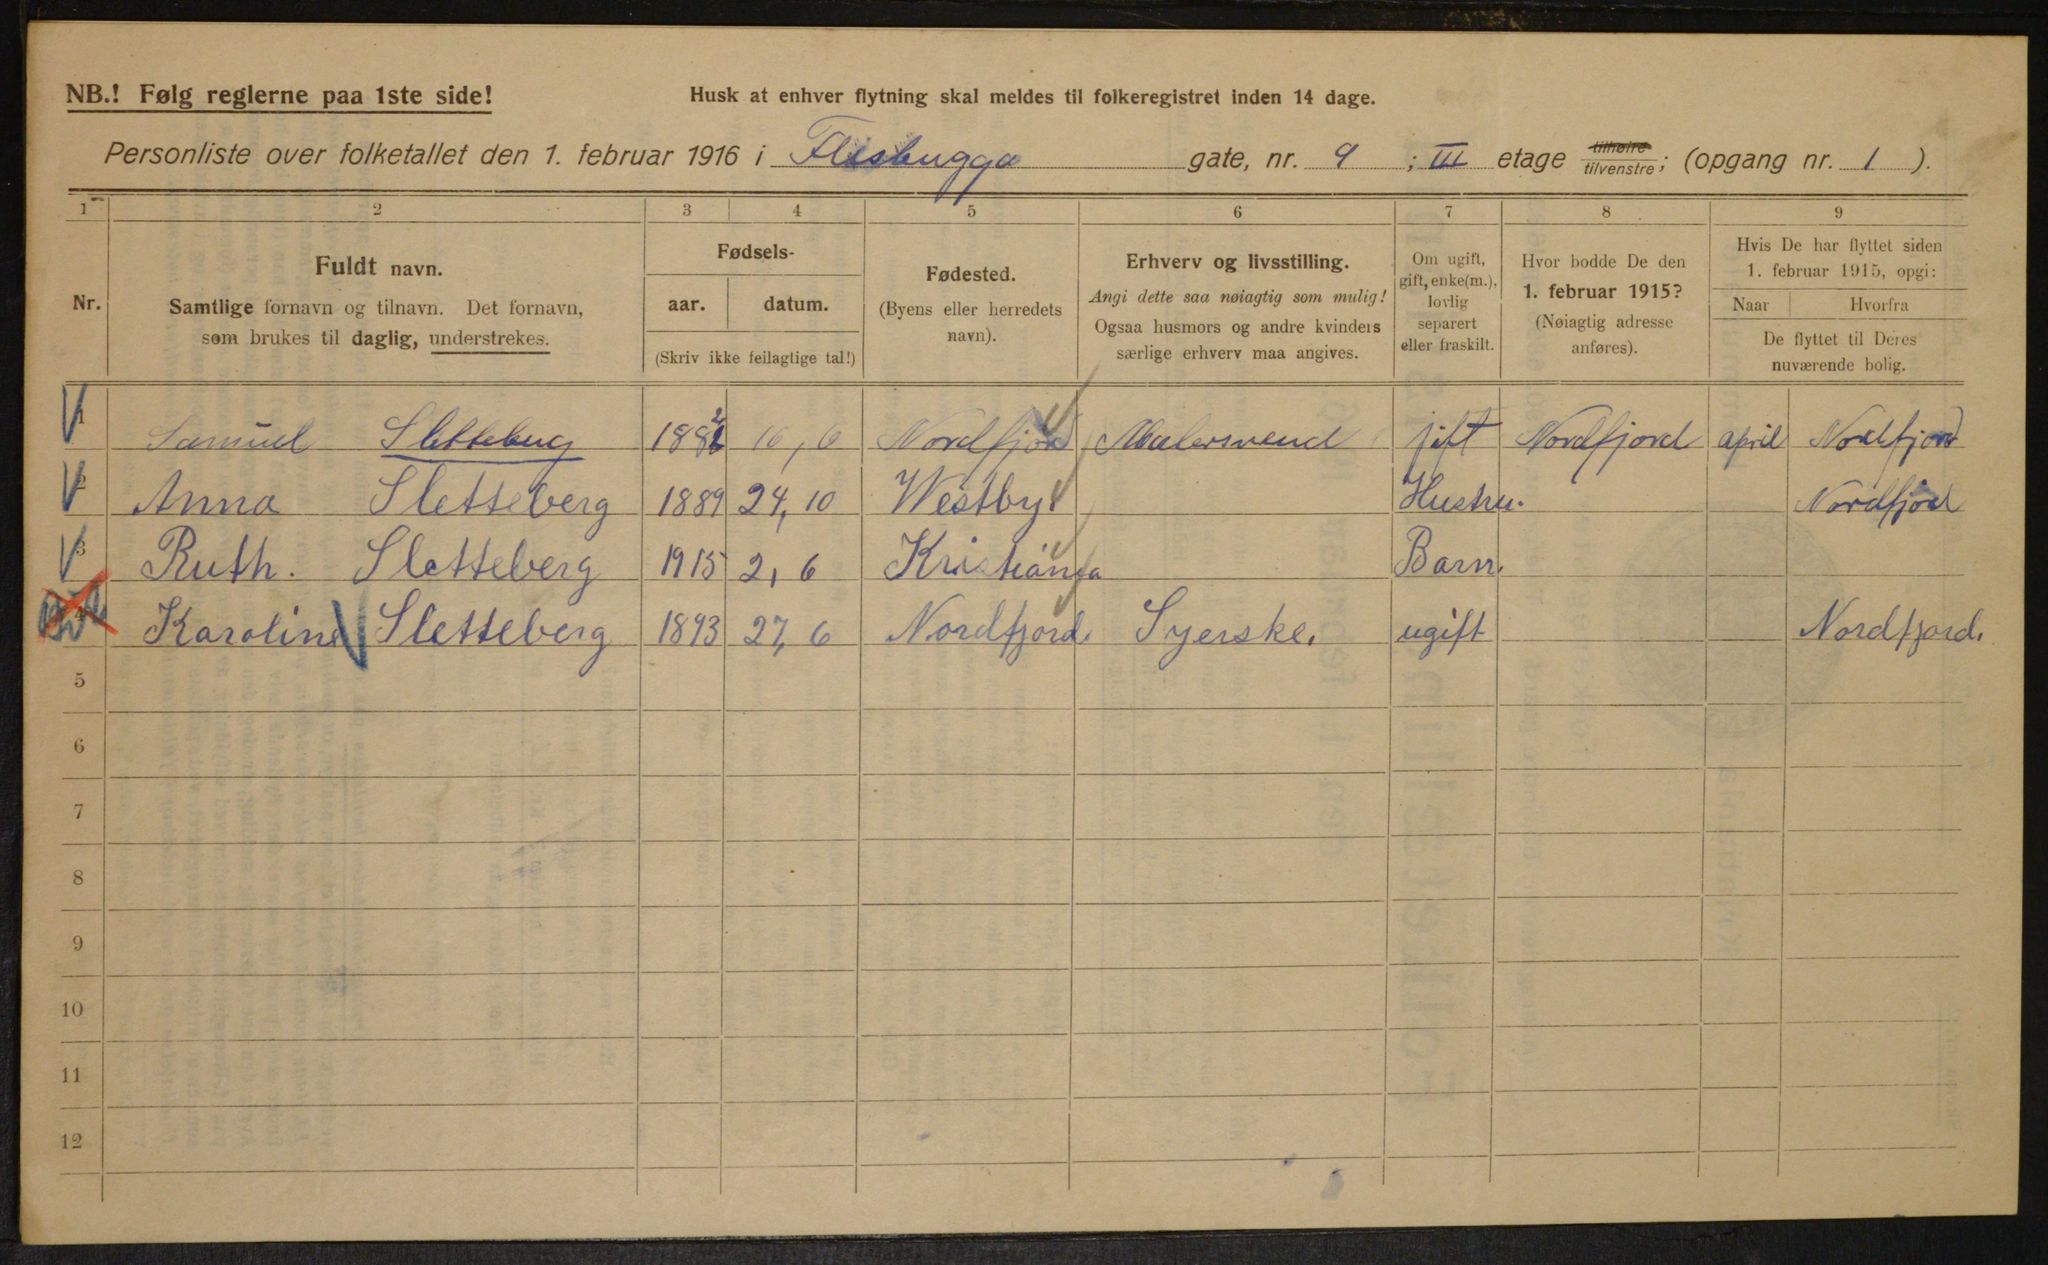 NB.! Følg reglerne paa 1ste side!
Husk at enhver flytning skal meldes til folkeregistret inden 14 dage.
Personliste over folketallet den 1. februar 1916 i Flisbugga gate, nr. 9; III etage tilhøire tilvenstre; (opgang nr. 1).
1 2 3 4 5 6 7 8 9
Nr.
Fuldt navn.
Samtlige fornavn og tilnavn. Det fornavn,
som brukes til daglig, understrekes.
Fødsels-
aar. datum.
(Skriv ikke feilagtige tal!)
Fødested.
(Byens eller herredets
navn).
Erhverv og livsstilling.
Angi dette saa nøiagtig som mulig!
Ogsaa husmors og andre kvinders
særlige erhverv maa angives.
Om ugift,
gift, enke(m.),
lovlig
separert
eller fraskilt.
Hvor bodde De den
1. februar 1915?
(Nøiagtig adresse
anføres).
Hvis De har flyttet siden
1. februar 1915, opgi:
Naar Hvorfra
De flyttet til Deres
nuværende bolig.
1 Samuel Sletteberg 1882 16, 6 Nordfjord Malersvend gift Nordfjord april Nordfjord
2 Anna Sletteberg 1889 24, 10 Westby Hustru. Nordfjord
3 Ruth. Sletteberg 1915 2, 6 Kristiania Barn.
4 Karoline Sletteberg 1893 27, 6 Nordfjord. Syerske. ugift Nordfjord.
5
6
7
8
9
10
11
12